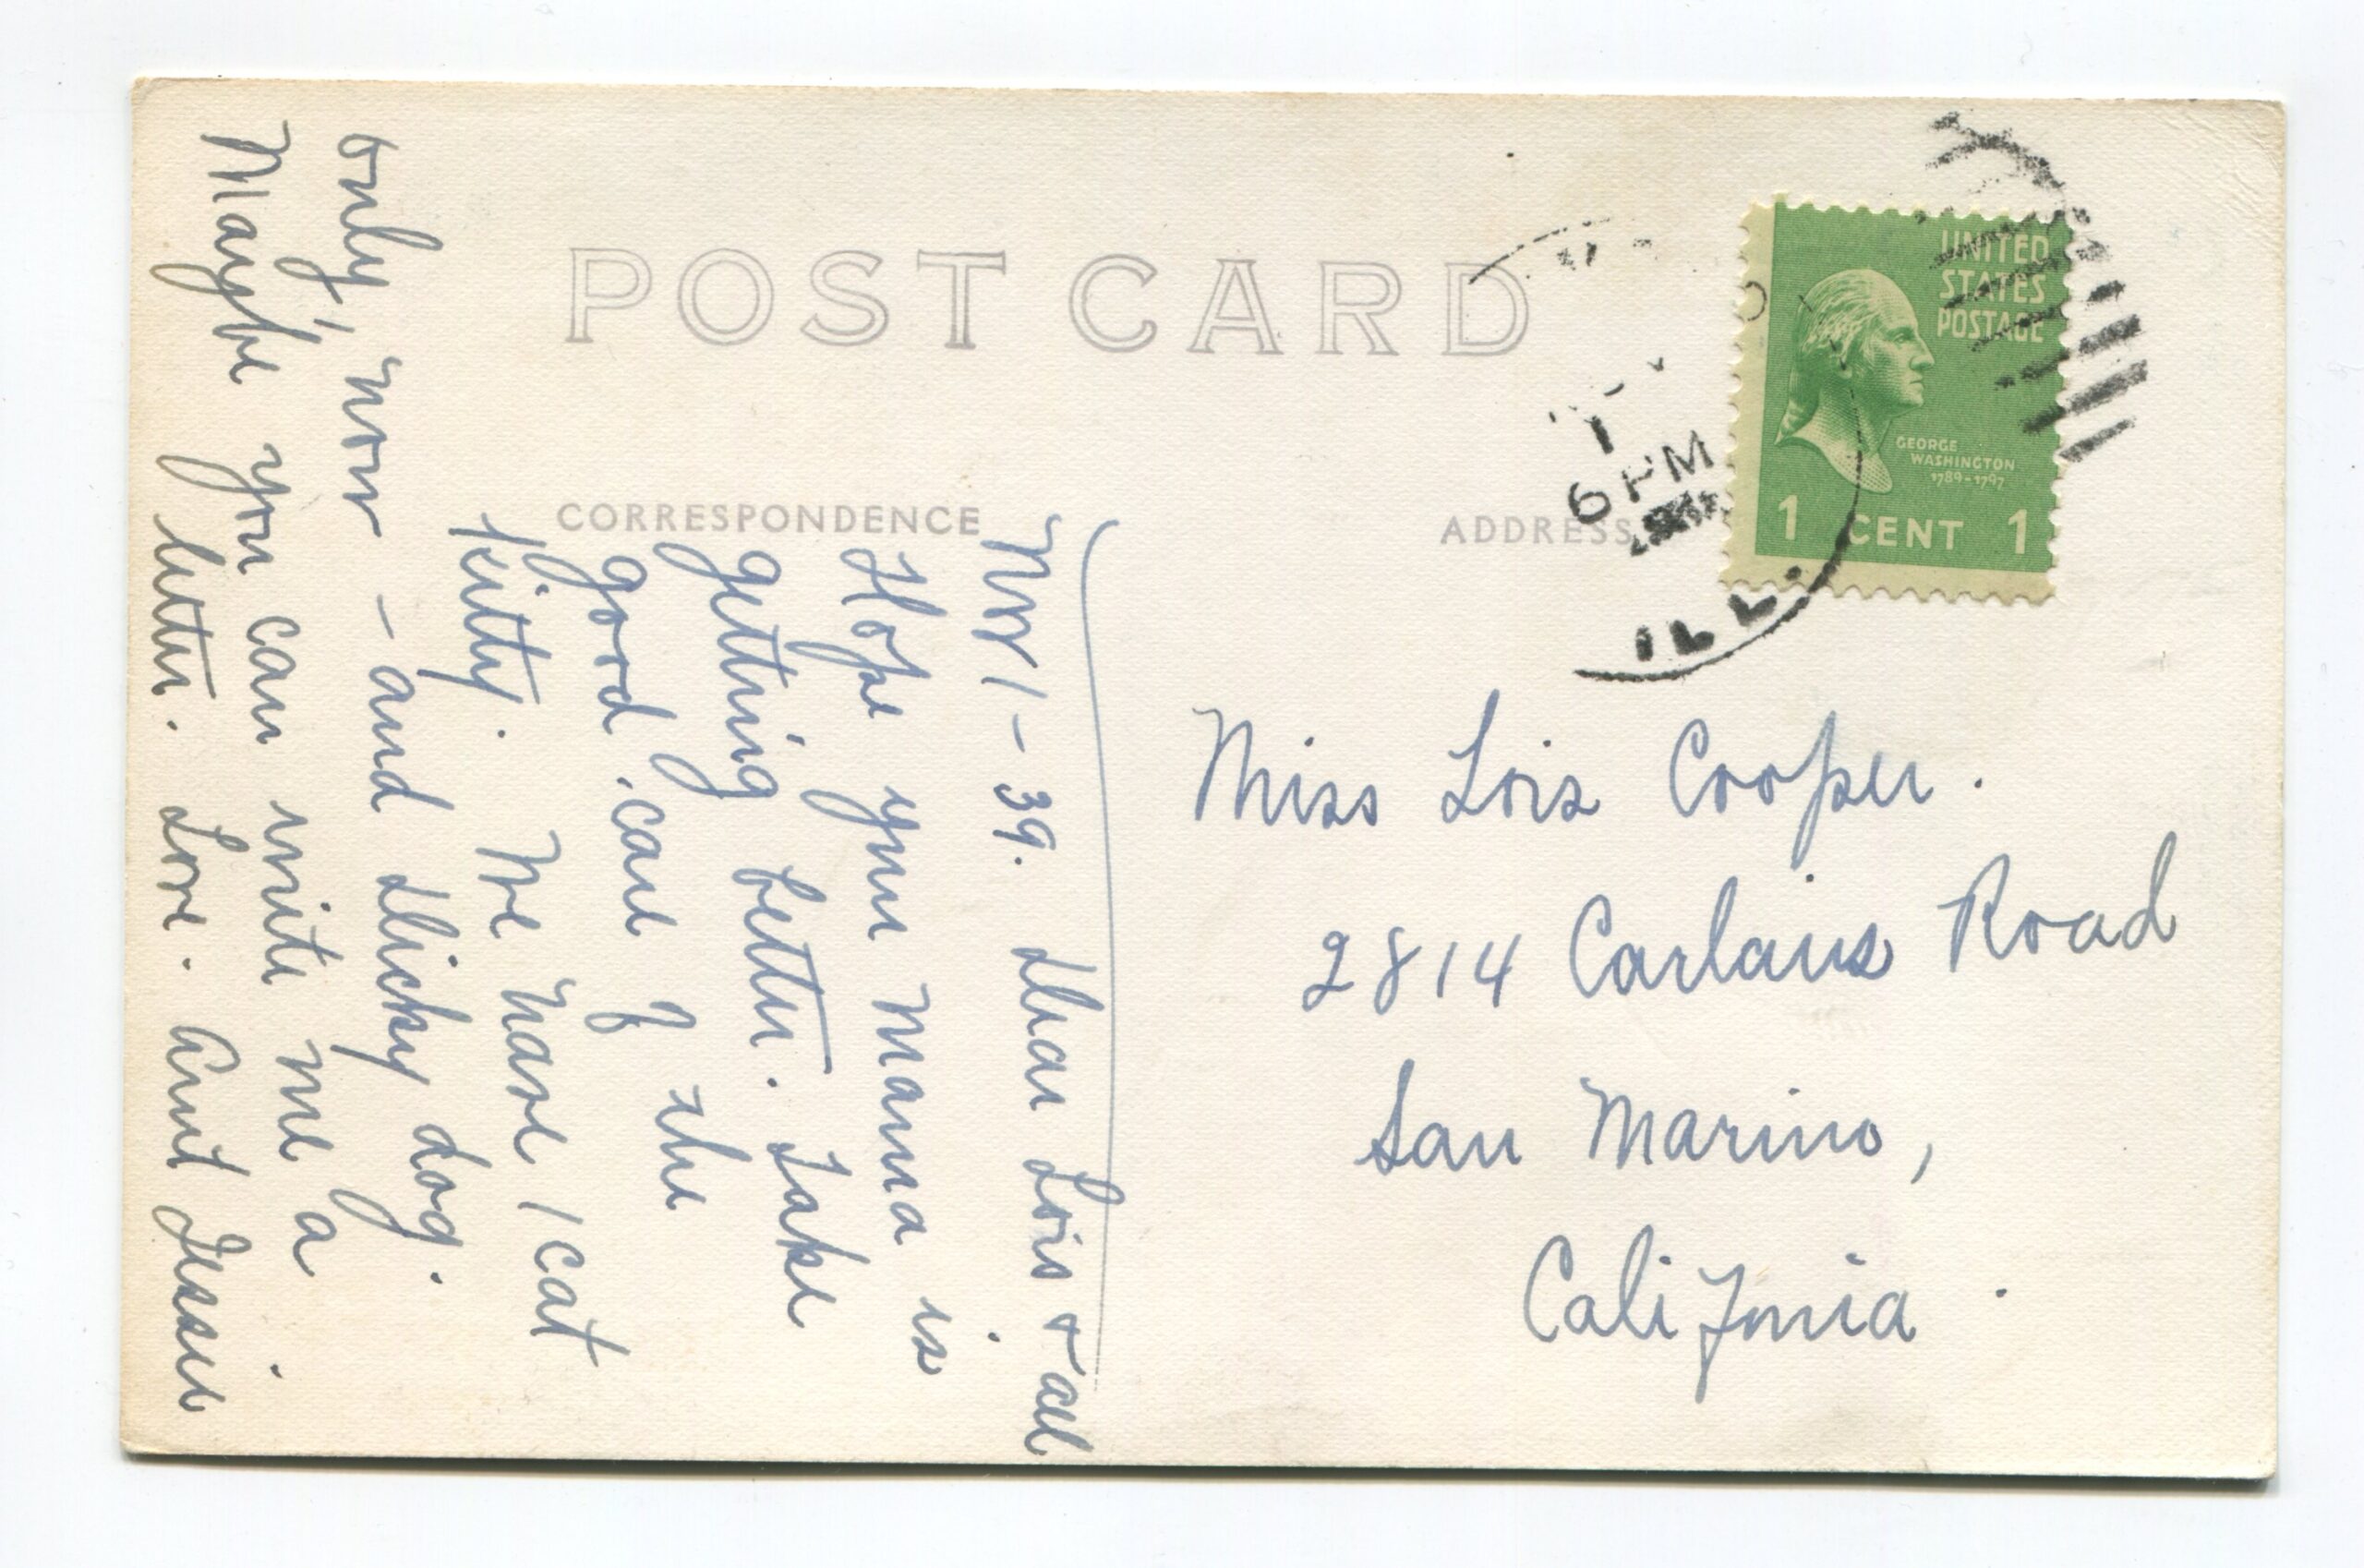 POST CARD
CORRESPONDENCE
ADDRESS
UNITED
STATES
POSTAGE
GEORGE
WASHINGTON
1789-1797
1 CENT 1
6 PM
ILL.
Nov 1 - 39. Dear Lois & all
Hope your mama is
getting better. Take
good care of the
kitty. We have 1 cat
only, now - and Dicky dog.
Maybe you can write me a
letter. Love. Aunt Jessie
Miss Lois Cooper.
2814 Carlaris Road
San Marino,
California.